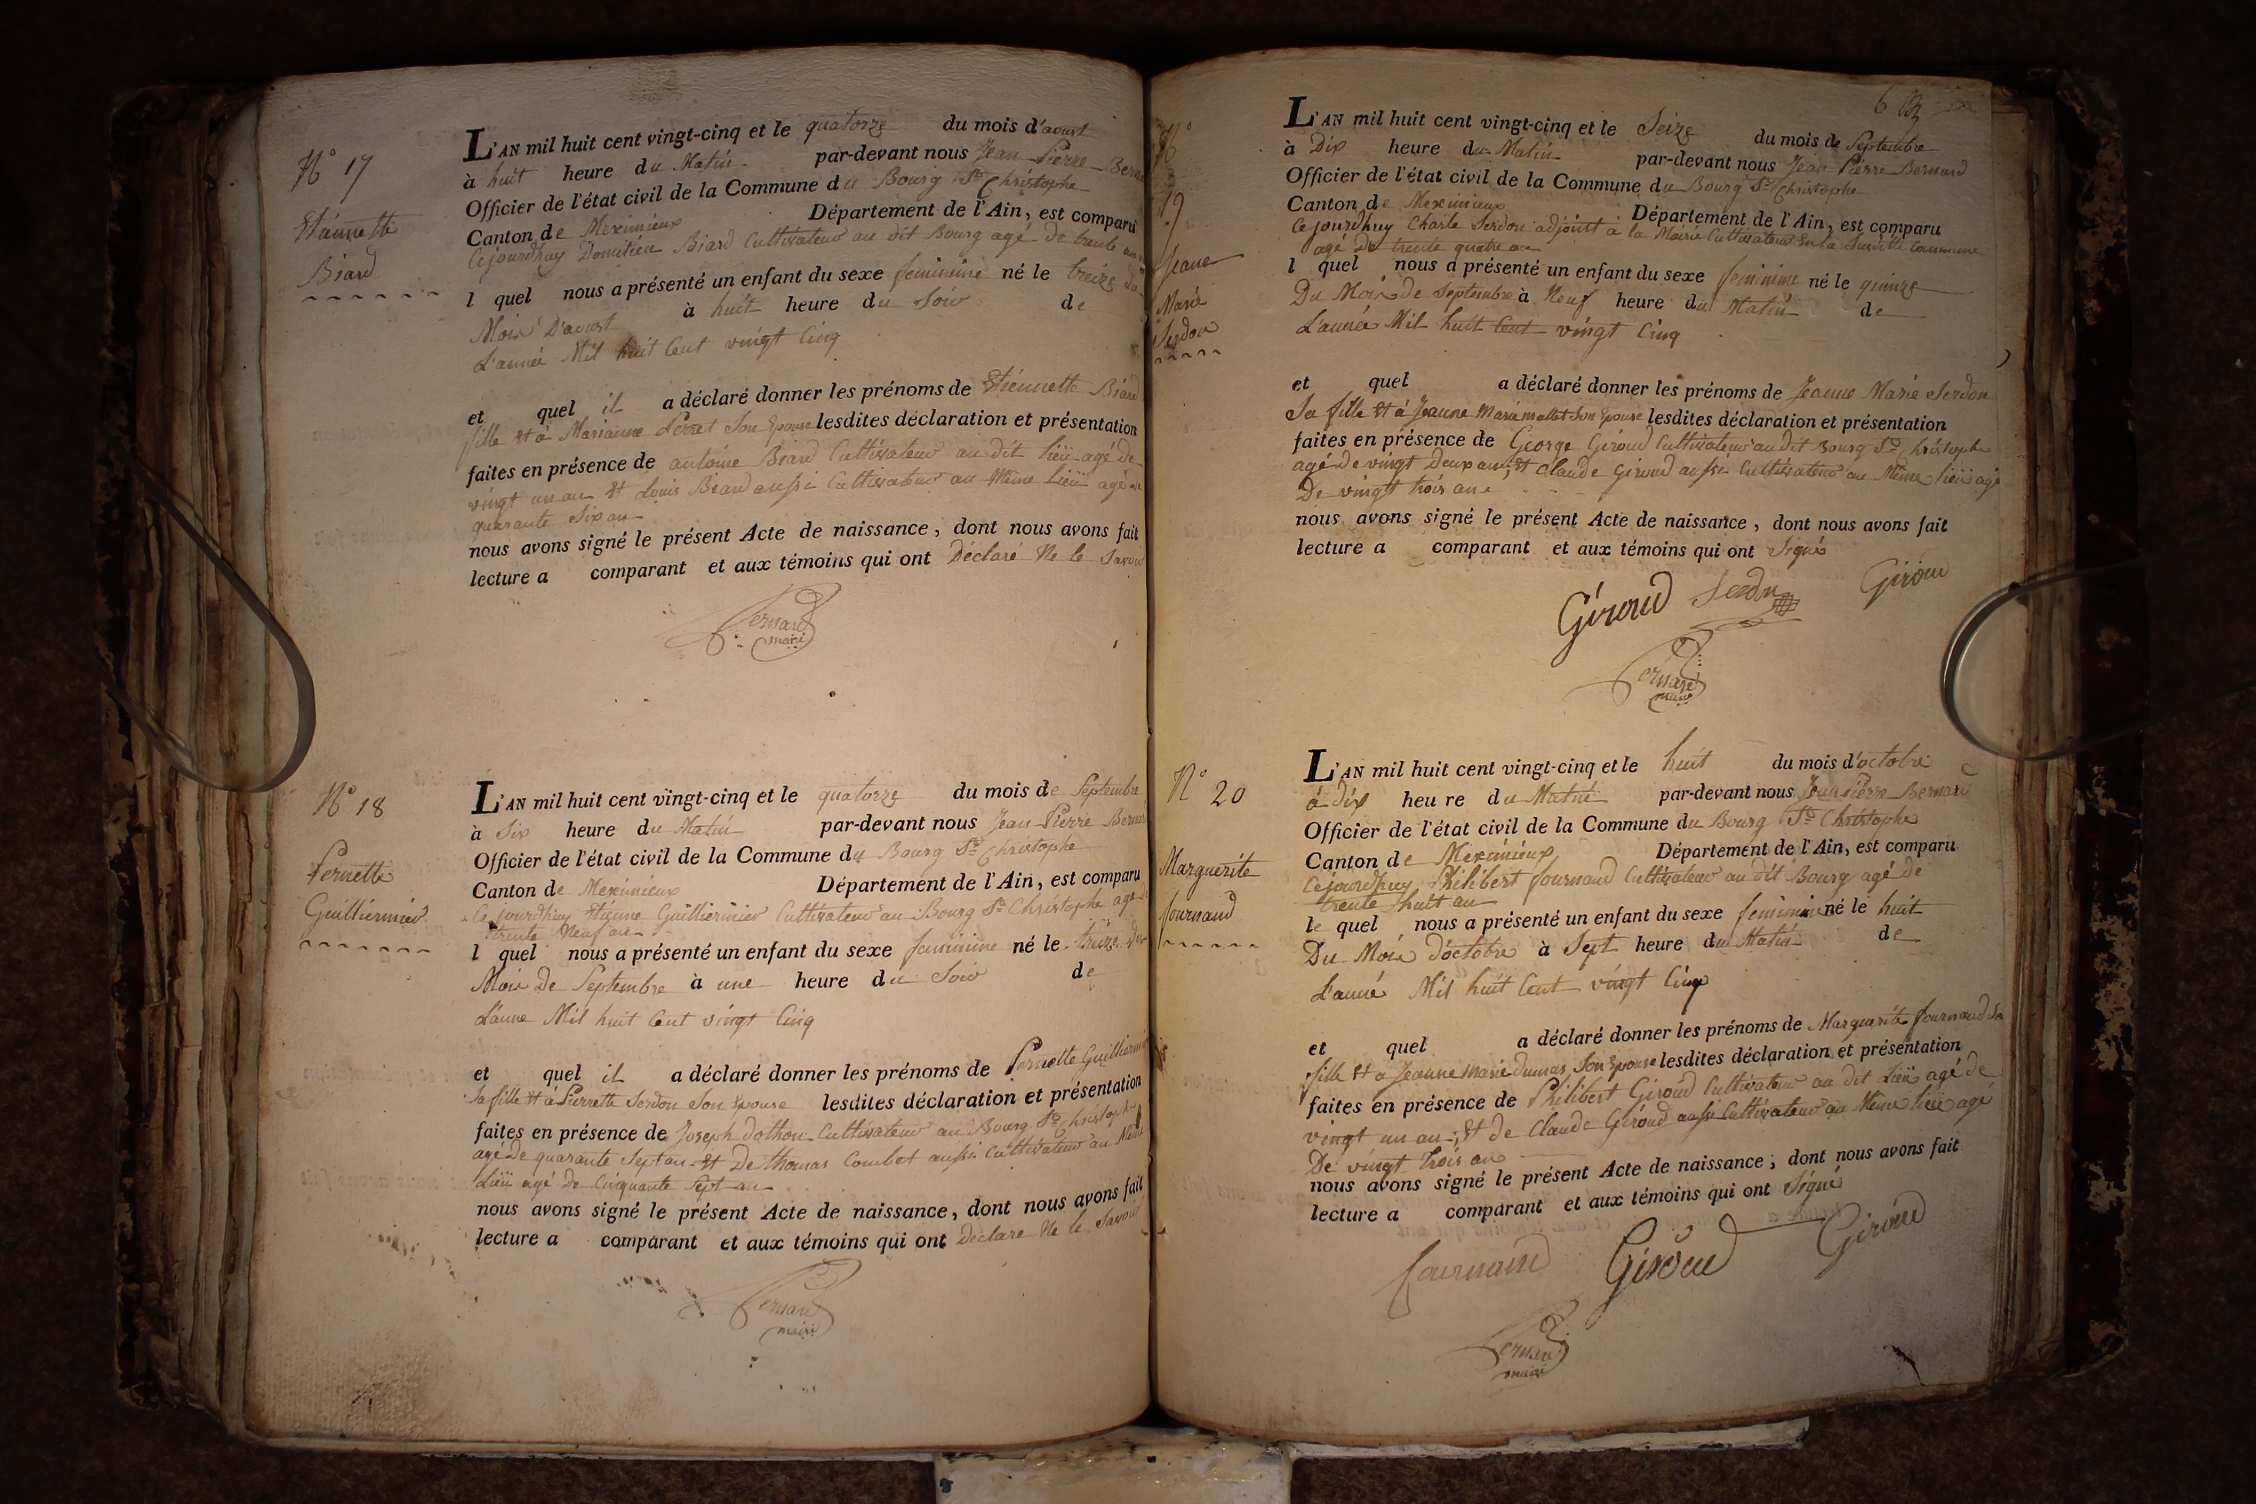 N° 17
Etiennette
Biard
L'AN mil huit cent vingt-cinq et le quatorze du mois d'aoust
à huit heure du Matin par-devant nous Jean Pierre Bernard
Officier de l'état civil de la Commune du Bourg St Christophe
Canton de Meximieux Département de l'Ain, est comparu
Cejourdhuy Domitien Biard Cultivateur au dit Bourg agé de trente ans
l quel nous a présenté un enfant du sexe feminine né le treize du
Mois D'aoust à huit heure du Soir de
L'année Mil huit Cent vingt Cinq
et quel il a déclaré donner les prénoms de Etiennette Biard
fille Et à Marianne Perret Son Epouse lesdites déclaration et présentation
faites en présence de antoine Biard Cultivateur au dit lieu agé de
vingt un an Et Louis Biard aussi Cultivateur au Même Lieu agé de
quarante Six an
nous avons signé le présent Acte de naissance, dont nous avons fait
lecture a comparant et aux témoins qui ont Déclaré Ne le Savoir
Bernard
maire
N° 18
Pernette
Guilliermier
L'AN mil huit cent vingt-cinq et le quatorze du mois de Septembre
à Six heure du Matin par-devant nous Jean Pierre Bernard
Officier de l'état civil de la Commune du Bourg St Christophe
Canton de Meximieux Département de l'Ain, est comparu
Ce jourdhuy Etienne Guilliermier Cultivateur au Bourg St Christophe agé de
trente Neuf an
l quel nous a présenté un enfant du sexe feminine né le treize du
Mois De Septembre à une heure du Soir de
L'anne Mil huit Cent vingt Cinq
et quel il a déclaré donner les prénoms de Pernette Guilliermier
Sa fille Et à Pierrette Serdon Son Epouse lesdites déclaration et présentation
faites en présence de Joseph dothon Cultivateur au Bourg St Christophe
agé de quarante Sept an Et De thomas Combet aussi Cultivateur au Même
Lieu agé de Cinquante Sept an
nous avons signé le présent Acte de naissance, dont nous avons fait
lecture a comparant et aux témoins qui ont Déclaré Ne le Savoir
Bernard
maire
6
N°
19
Jeane
Marie
Serdon
L'AN mil huit cent vingt-cinq et le Seize du mois de Septembre
à Dix heure du Matin par-devant nous Jean Pierre Bernard
Officier de l'état civil de la Commune du Bourg St Christophe
Canton de Meximieux Département de l'Ain, est comparu
Ce jourdhuy Charle Serdon adjoint à la Mairie Cultivateur En la Susdite Commune
agé De trente quatre an
l quel nous a présenté un enfant du sexe feminine né le quinze
Du Mois de Septembre à Neuf heure du Matin de
L'année Mil huit Cent vingt Cinq
et quel a déclaré donner les prénoms de Jeanne Marie Serdon
Sa fille Et à Jeanne Marie mallet Son Epouse lesdites déclaration et présentation
faites en présence de George Giroud Cultivateur au dit Bourg St Christophe
agé de vingt Deux an; Et Claude Giroud aussi Cultivateur au Même lieu agé
De vingt trois an
nous avons signé le présent Acte de naissance, dont nous avons fait
lecture a comparant et aux témoins qui ont Signé
Giroud Serdon Giroud
Bernard
maire
N° 20
Marguerite
fournaud
L'AN mil huit cent vingt-cinq et le huit du mois d'octobre
à dix heure du Matin par-devant nous Jean Pierre Bernard
Officier de l'état civil de la Commune du Bourg St Christophe
Canton de Meximieux Département de l'Ain, est comparu
Cejourdhuy Philibert fournaud Cultivateur au dit Bourg agé de
trente huit an
le quel nous a présenté un enfant du sexe feminine né le huit
Du Mois d'octobre à Sept heure du Matin de
L'année Mil huit Cent vingt Cinq
et quel a déclaré donner les prénoms de Marguerite fournaud Sa
fille Et à Jeanne Marie Dumas Son Epouse lesdites déclaration et présentation
faites en présence de Philibert Giroud Cultivateur au dit Lieu agé de
vingt un an; Et de Claude Giroud aussi Cultivateur au Même lieu agé
De vingt trois an
nous avons signé le présent Acte de naissance; dont nous avons fait
lecture a comparant et aux témoins qui ont Signé
fournaud Giroud Giroud
Bernard
maire